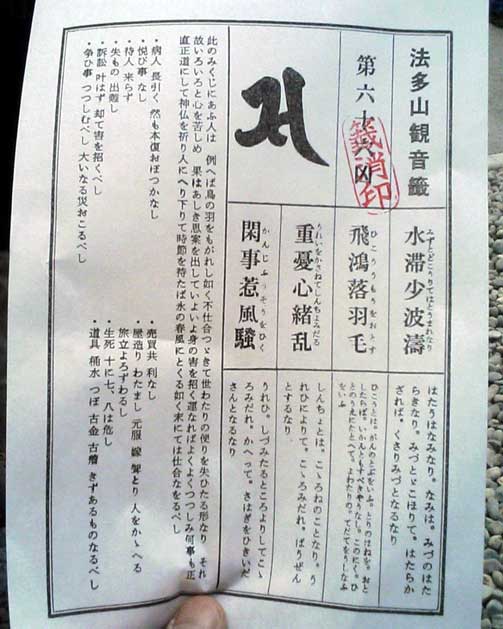 法多山観音籤
第六十六凶
籤消印
水滞少波濤
みずとどこうりてはとうまれなり
飛鴻落羽毛
ひこううもうをおとす
重憂心緒乱
うれいをかさねてしんちょみだる
閑事惹風騒
かんじふっそうをひく
はたうはなみなり。なみは。みづのはた
らきなり。みづとゞこほりて。はたらか
ざれば。くさりみづとなるなり
ひこうとは。がんのとぶをいふ。とりのはねを。おと
したらば。いかんともすべきやうなし。このにく。ひ
とのうえにたとへて。よわたりの。てだてをうしなふ
をいふ
しんちょとは。こゝろねのことなり。う
れひによりて。こゝろみだれ。ばうぜん
とするなり
うれひ。しづみたるところよりしてこゝ
ろみだれ。かへって。さはぎをひきいだ
さんとなるなり
此のみくじにあふ人は 例へば鳥の羽をもがれし如く不仕合つゞきて世わたりの便りを失ひたる形なり それ
故いろいろと心を苦しめ 果はあしき思案を出していよいよ身の害を招く運なればよくよくつつしみ何事も正
直正道にして神仏を祈り人にへり下りて時節を待たば氷の春風にとくる如く末にては仕合なをるべし
・病人 長引く 然も本復おぼつかなし
・悦び事 なし
・待人 来らず
・失もの 出難し
・訴訟 叶はず 却て害を招くべし
・争ひ事 つつしむべし 大いなる災おこるべし
・売買共 利なし
・屋造り わたまし 元服 嫁 聟とり 人をかゝへる
旅立よろずわるし
・生死 十に七、八は危し
・道具 桶水 つぼ 古金 古鏡 きずあるものなるべし